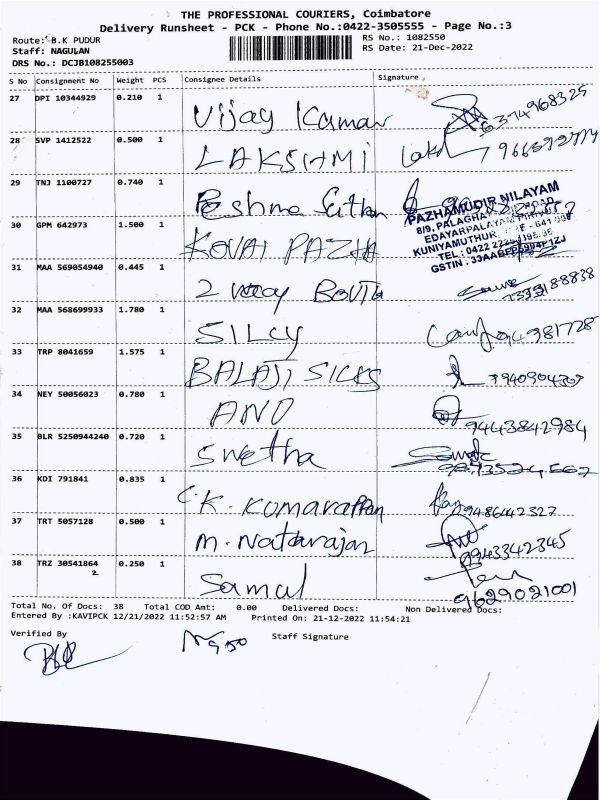 THE PROFESSIONAL COURIERS, Coimbatore
Delivery Runsheet - PCK - Phone No.:0422-3505555 - Page No.:3
Route: B.K PUDUR RS No.: 1082550
Staff: NAGULAN RS Date: 21-Dec-2022
DRS No.: DCJB108255003
S No Consignment No Weight PCS Consignee Details Signature
27 DPI 10344929 0.210 1 Vijay Kumar 6374968325
28 SVP 1412522 0.500 1 LAKSHMI
29 TNJ 1100727 0.740 1 Reshma
30 GPM 642973 1.500 1 KOVAI PAZHA
PAZHAMUDIR NILAYAM
EDAYARPALAYAM
KUNIYAMUTHUR
TEL : 0422
GSTIN :
31 MAA 569054940 0.445 1 2 way
32 MAA 568699933 1.780 1 SILKY
33 TRP 8041659 1.575 1 BALAJI SILKS
34 NEY 50056023 0.780 1 AND 9443842984
35 BLR 5250944240 0.720 1 Swetha
36 KDI 791841 0.835 1 C.K. Kumarappan
37 TRT 5057128 0.500 1 M. Natarajan 0943342345
38 TRZ 30541864 0.250 1 9629021001
2
Total No. Of Docs: 38 Total COD Amt: 0.00 Delivered Docs: Non Delivered Docs:
Entered By :KAVIPCK 12/21/2022 11:52:57 AM Printed On: 21-12-2022 11:54:21
Verified By Staff Signature